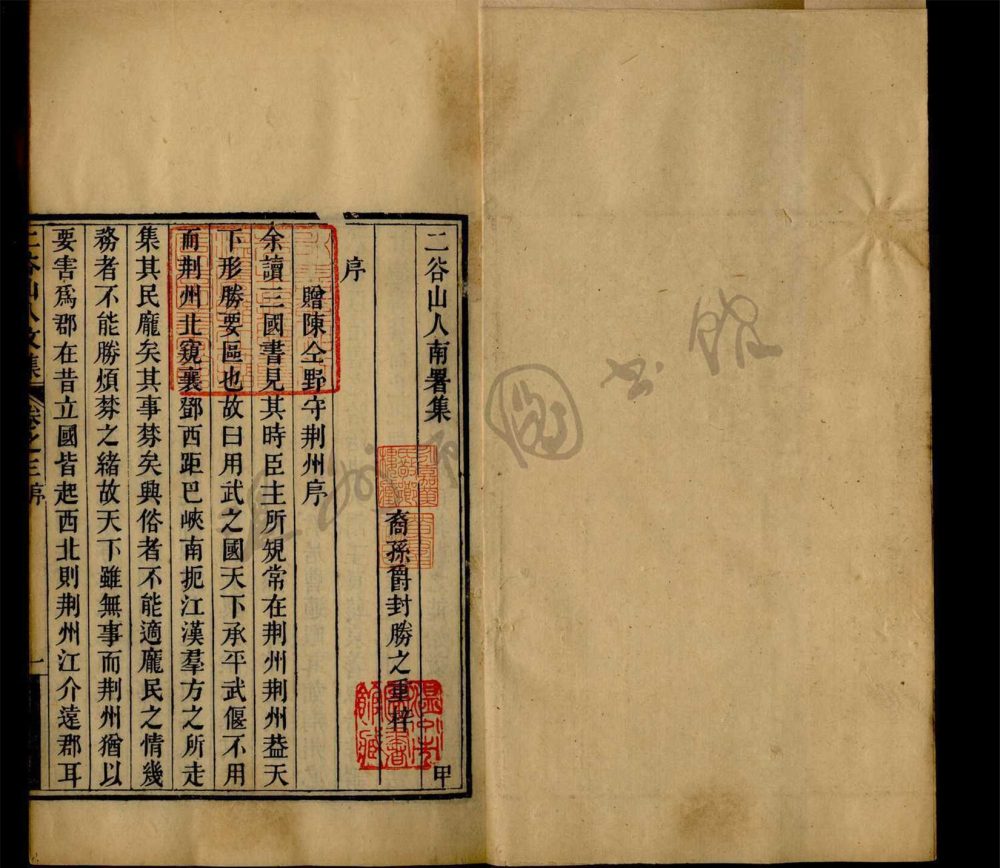 二谷山人南署集
甲
裔孫爵封勝之重梓
序
贈陳仝野守荆州序
余讀三國書見其時臣主所䂓常在荆州荆州葢天
下形勝要區也故曰用武之國天下承平武偃不用
而荆州北窺襄鄧西距巴峽南扼江漢羣方之所走
集其民龐矣其事棼矣興俗者不能適龐民之情幾
務者不能勝煩棼之緒故天下雖無事而荆州猶以
要害爲郡在昔立國皆起西北則荆州江介遠郡耳
二谷山人文集
卷之三序
一
圖書館